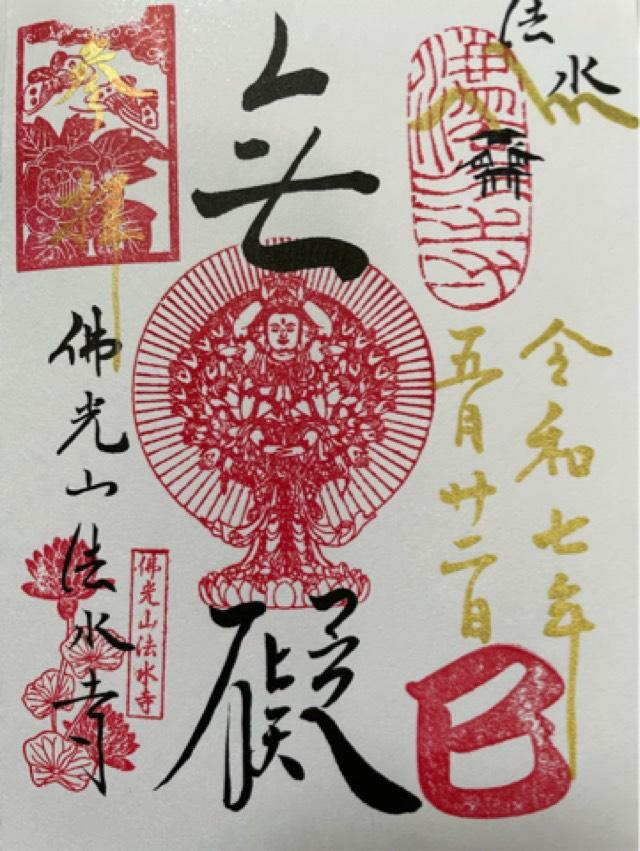 法水
令和七年
五月廿二日
巳
無礙
参拝
佛光山法水寺
佛光山法水寺